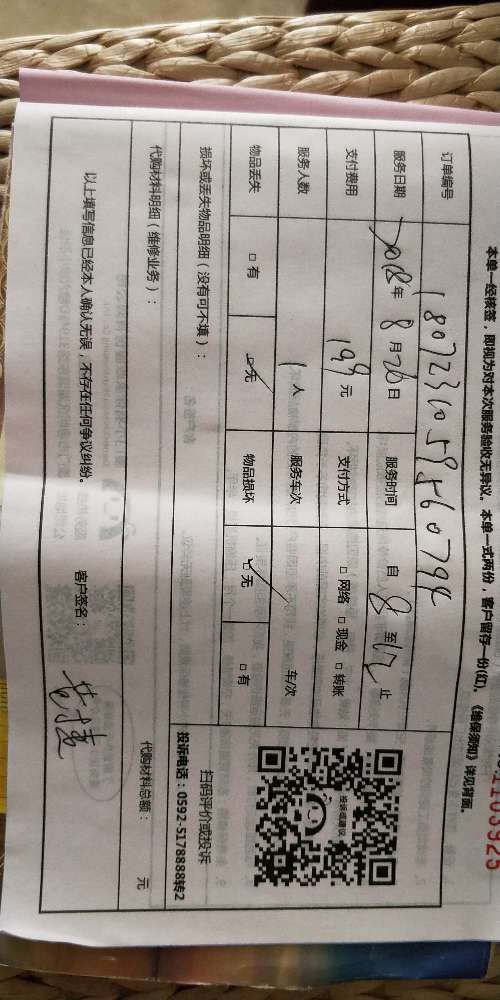 本单一经核签，即视为对本次服务验收无异议。本单一式两份，客户留存一份(红)，《维保须知》详见背面。
订单编号
服务日期 2018年 8月26日 服务时间 自 8 至12止
支付费用 199元 支付方式 □ 网络 □ 现金 □ 转账
服务人数 1人 服务车次 车/次
物品丢失 □ 有 ☑ 无 物品损坏 ☑ 无 □ 有
投诉或建议
扫码评价或投诉
投诉电话：0592-5178888转2
损坏或丢失物品明细（没有可不填）：
代购材料明细（维修业务）： 代购材料总额： 元
以上填写信息已经本人确认无误，不存在任何争议纠纷。 客户签名：